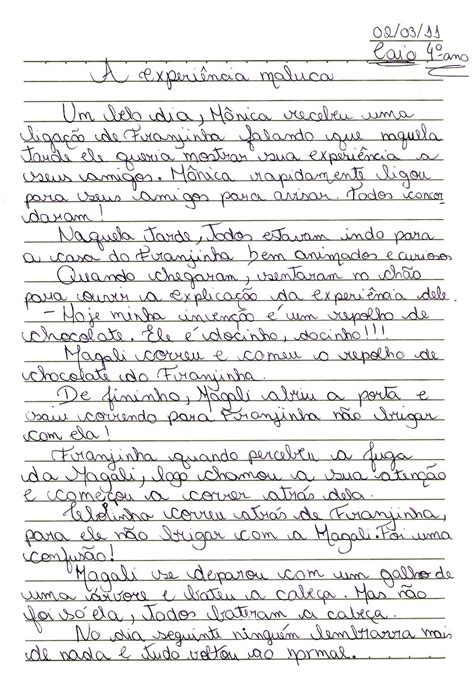 02/03/11
Caio 4º ano
A experiência maluca
Um belo dia, Mônica recebeu uma
ligação de Franjinha falando que naquela
tarde ele queria mostrar sua experiência a
seus amigos. Mônica rapidamente ligou
para seus amigos para avisar. Todos concor
daram!
Naquela tarde, todos estavam indo para
a casa do Franjinha bem animados e curiosos
Quando chegaram, sentaram no chão
para ouvir a explicação da experiência dele.
- Hoje minha invenção é um repolho de
chocolate. Ele é docinho, docinho!!!
Magali correu e comeu o repolho de
chocolate do Franjinha.
De fininho, Magali abriu a porta e
saiu correndo para Franjinha não brigar
com ela!
Franjinha quando percebeu a fuga
da Magali, logo chamou a sua atenção
e começou a correr atrás dela.
Cebolinha correu atrás de Franjinha,
para ele não brigar com a Magali. Foi uma
confusão!
Magali se deparou com um galho de
uma árvore e bateu a cabeça. Mas não
foi só ela, todos bateram a cabeça.
No dia seguinte ninguém lembrarra mais
de nada e tudo voltou ao normal.